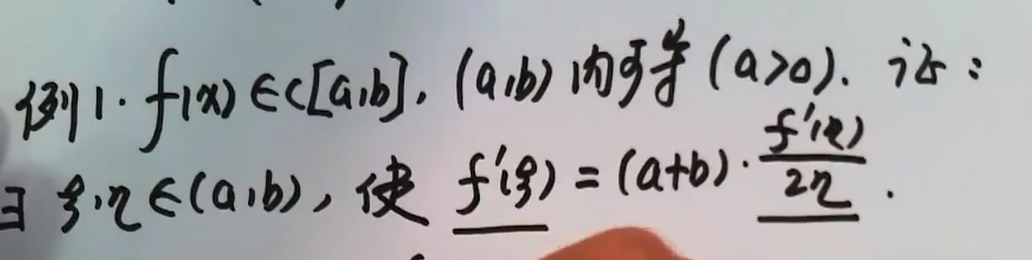 例1. f(x)∈C[a,b], (a,b)内可导(a>0). 证:
∃ ξ,η∈(a,b), 使 f'(ξ)=(a+b)·f'(η)/2η.